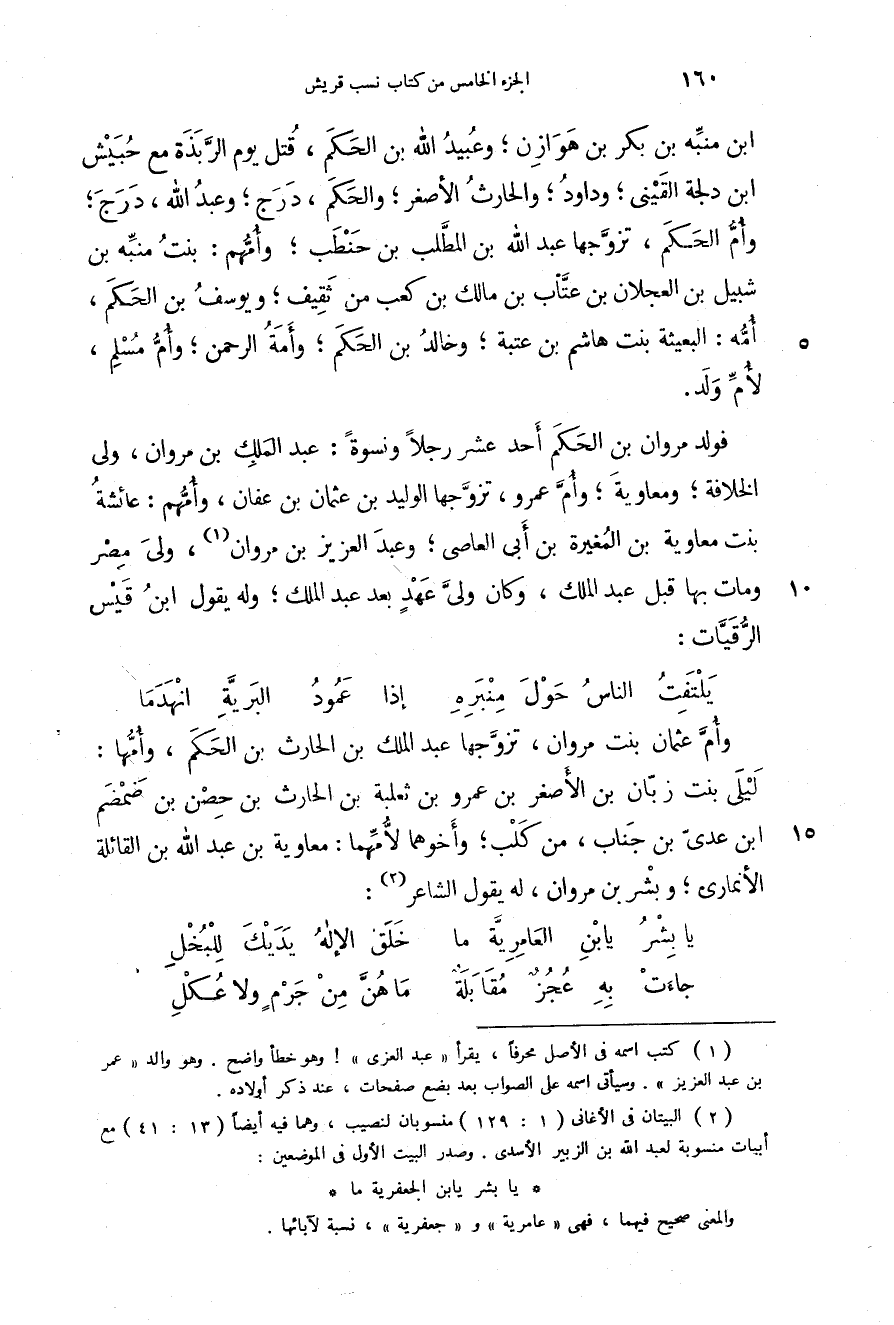 ١٦٠ الجزء الخامس من كتاب نسب قريش
ابن منبِّه بن بكر بن هَوَازِن ؛ وعُبيدُ الله بن الحَكَم ، قُتل يوم الرَّبَذَة مع حُبَيْش
ابن دلجة القَيْنى ؛ وداودُ ؛ والحارثُ الأصغر ؛ والحَكَم ، دَرَج ؛ وعبدُ الله ، دَرَجَ ؛
وأُمُّ الحَكَم ، تزوَّجها عبد الله بن المطَّلب بن حَنْطَب ؛ وأُمُّهم : بنتُ منبِّه بن
شبيل بن العجلان بن عتَّاب بن مالك بن كعب من ثَقِيف ؛ ويوسفُ بن الحَكَم ،
٥ أُمُّه : البعيثة بنت هاشم بن عتبة ؛ وخالدُ بن الحَكَم ؛ وأَمَةُ الرحمن ؛ وأُمُّ مُسْلِم ،
لأُمِّ وَلَد .
فولد مروان بن الحَكَم أَحد عشر رجلاً ونسوةً : عبد المَلِك بن مروان ، ولى
الخلافة ؛ ومعاويةَ ؛ وأُمَّ عمرو ، تزوَّجها الوليد بن عثمان بن عفان ، وأُمُّهم : عائشةُ
بنت معاوية بن المُغيرة بن أَبى العاصى ؛ وعبدَ العزيز بن مروان (١) ، ولىَ مِصْر
١٠ ومات بها قبل عبد الملك ، وكان ولىَّ عَهْدٍ بعد عبد الملك ؛ وله يقول ابنُ قَيْس
الرُّقَيَّات :
يَلْتَفِتُ الناسُ حَوْلَ مِنْبَرِهِ إذا عَمُودُ البَرِيَّةِ انْهَدَمَا
وأُمَّ عثمان بنت مروان ، تزوَّجها عبد الملك بن الحارث بن الحَكَم ، وأُمُّها :
لَيْلَى بنت زبّان بن الأَصغر بن عمرو بن ثعلبة بن الحارث بن حِصْن بن ضَمْضَم
١٥ ابن عدىّ بن جَناب ، من كَلْب ؛ وأَخوهما لأُمِّهما : معاوية بن عبد الله بن القائلة
الأنمارى ؛ وبِشْر بن مروان ، له يقول الشاعر (٢) :
يا بِشْرُ يابْنِ العَامِرِيَّة ما خَلَقَ الإلٰهُ يَدَيْكَ لِلْبُخْلِ
جاءَتْ بِهِ عُجُزٌ مُقَابَلَةٌ مَا هُنَّ مِنْ جَرْمٍ ولا عُكْلِ
( ١ ) كتب اسمه فى الأصل محرفاً ، يقرأ « عبد العزى » ! وهو خطأ واضح . وهو والد « عمر
بن عبد العزيز » . وسيأتى اسمه على الصواب بعد بضع صفحات ، عند ذكر أولاده .
( ٢ ) البيتان فى الأغانى ( ١ : ١٢٩ ) منسوبان لنصيب ، وهما فيه أيضاً ( ١٣ : ٤١ ) مع
أبيات منسوبة لعبد الله بن الزبير الأسدى . وصدر البيت الأول فى الموضعين :
* يا بشر يابن الجعفرية ما *
والمعنى صحيح فيهما ، فهى « عامرية » و « جعفرية » ، نسبة لآبائها .